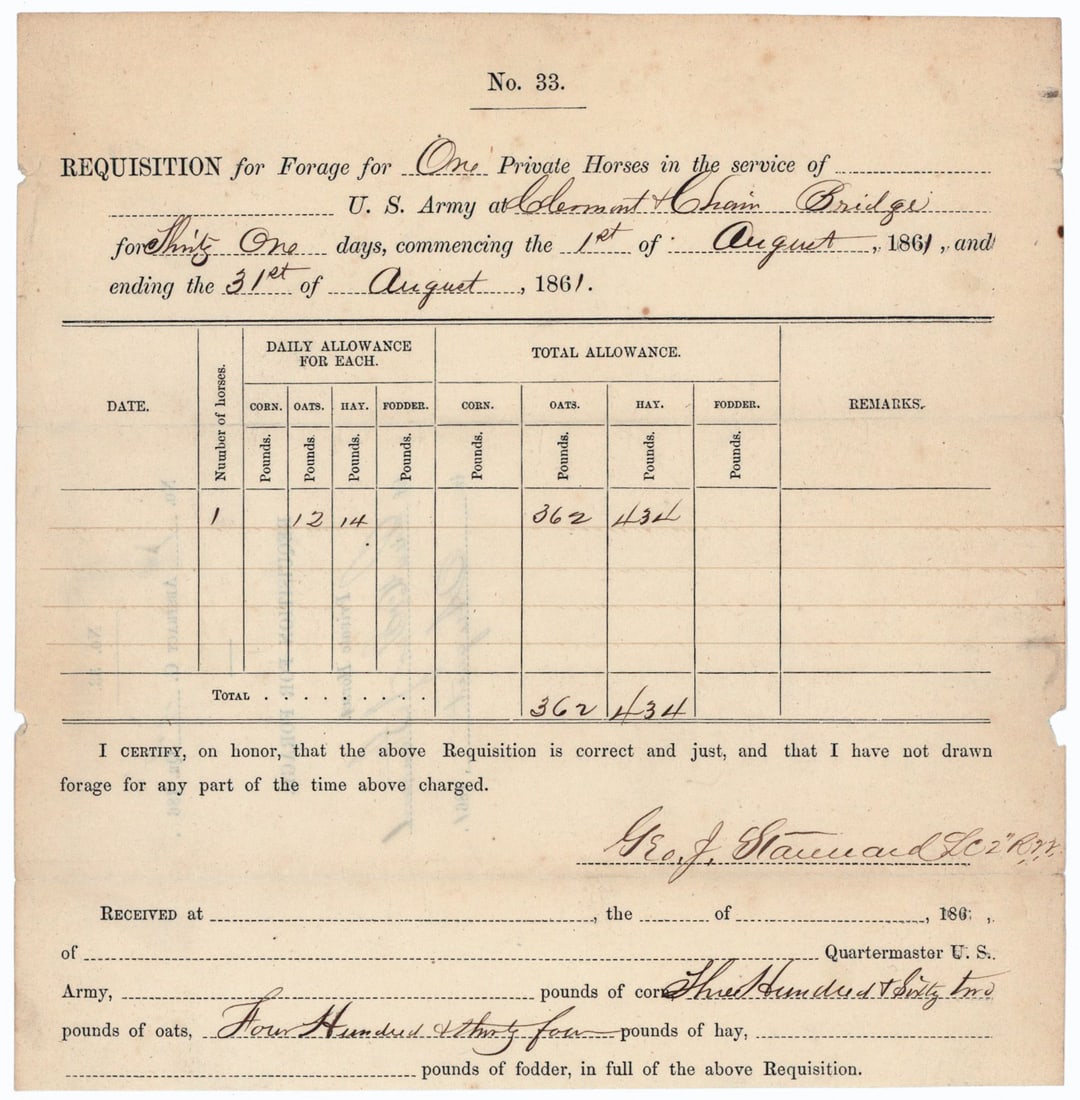 No. 33.
REQUISITION for Forage for One Private Horses in the service of
U. S. Army at Clermont & Chain Bridge
for Thirty One days, commencing the 1st of August, 1861, and
ending the 31st of August, 1861.
DATE. Number of horses. DAILY ALLOWANCE FOR EACH. TOTAL ALLOWANCE. REMARKS.
CORN. OATS. HAY. FODDER. CORN. OATS. HAY. FODDER.
Pounds. Pounds. Pounds. Pounds. Pounds. Pounds. Pounds. Pounds.
1 12 14 362 434
TOTAL . . . . . . . . . 362 434
I CERTIFY, on honor, that the above Requisition is correct and just, and that I have not drawn
forage for any part of the time above charged.
Geo. J. Stannard LC 2"
RECEIVED at , the of , 186 ,
of Quartermaster U. S.
Army, pounds of corn Three Hundred & Sixty two
pounds of oats, Four Hundred & thirty four pounds of hay,
pounds of fodder, in full of the above Requisition.